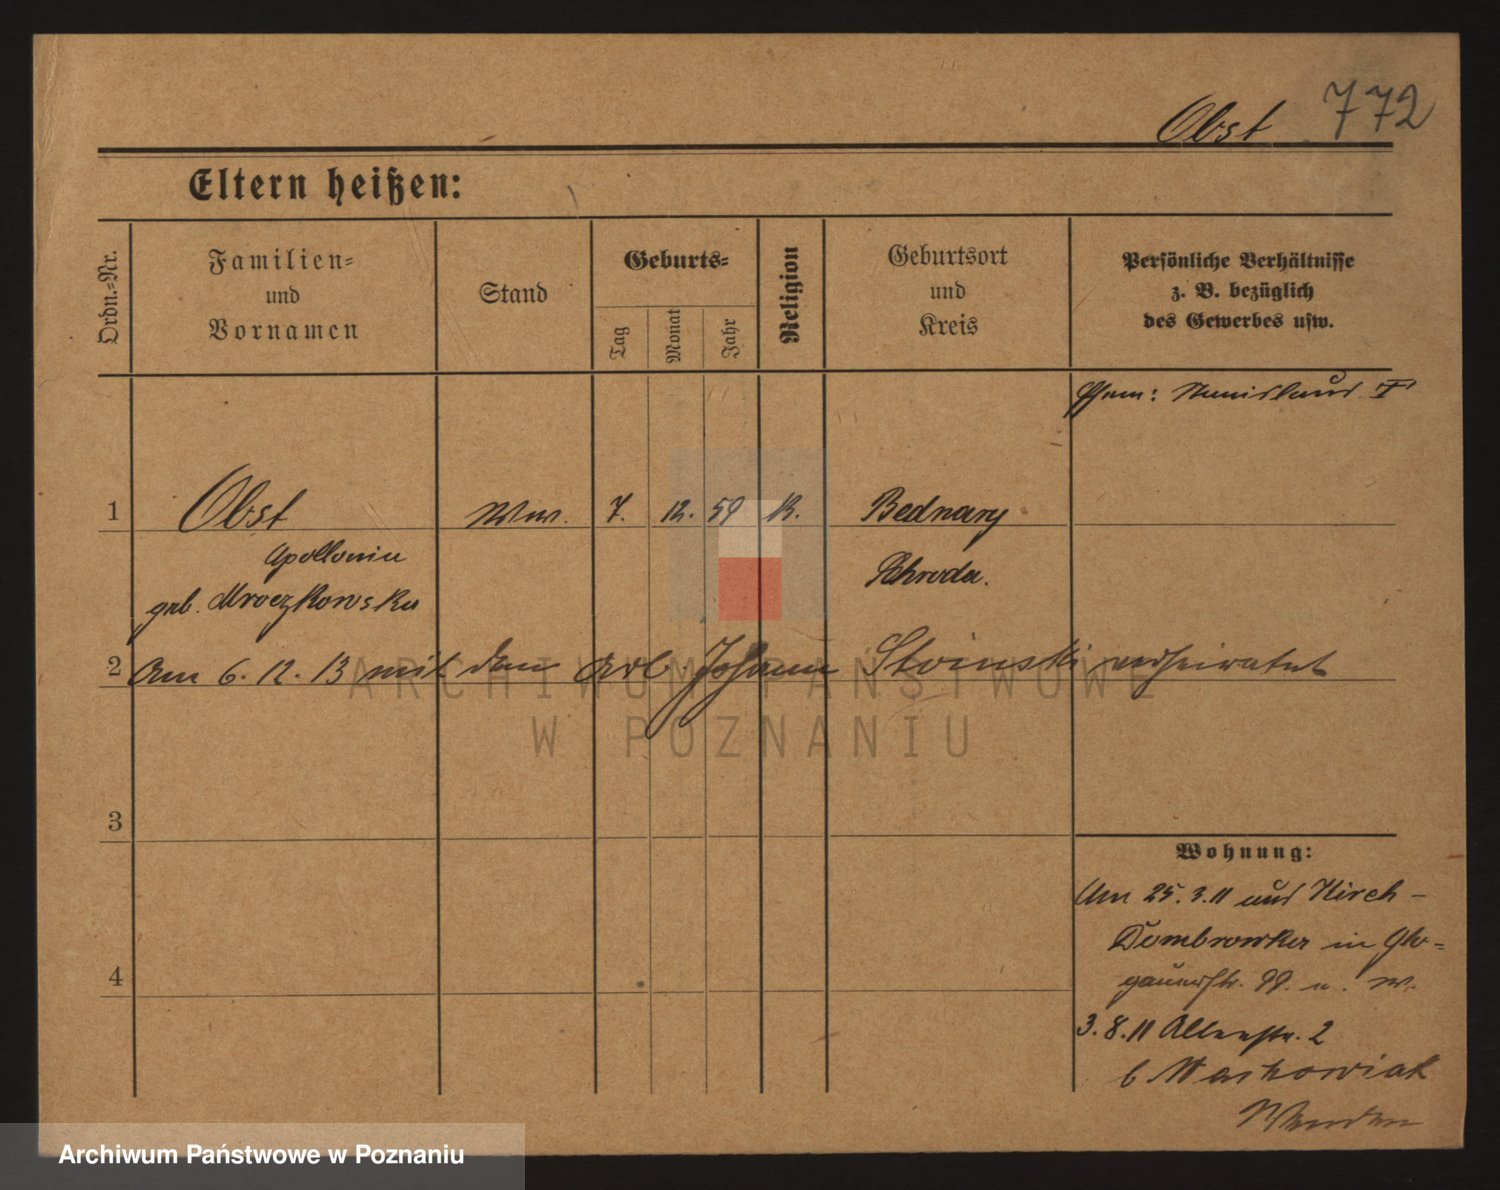 Obst 772
Eltern heißen:
Ordn.-Nr.
Familien-
und
Vornamen
Stand
Geburts-
Tag
Monat
Jahr
Religion
Geburtsort
und
Kreis
Persönliche Verhältnisse
z. B. bezüglich
des Gewerbes usw.
Ehem: Stanislaus
1 Obst Ww. 7. 12. 59 K. Bednary
Apollonia Schroda.
geb. Mroczkowska
2 Am 6. 12. 13 mit dem Arb. Johann verheiratet
3
4
Wohnung:
Am 25. 3. 11 aus Kirch-
Dombrowka in Glo-
gauerstr. 99.
3. 8. 11 2
b
ARCHIWUM PAŃSTWOWE
W POZNANIU
Archiwum Państwowe w Poznaniu